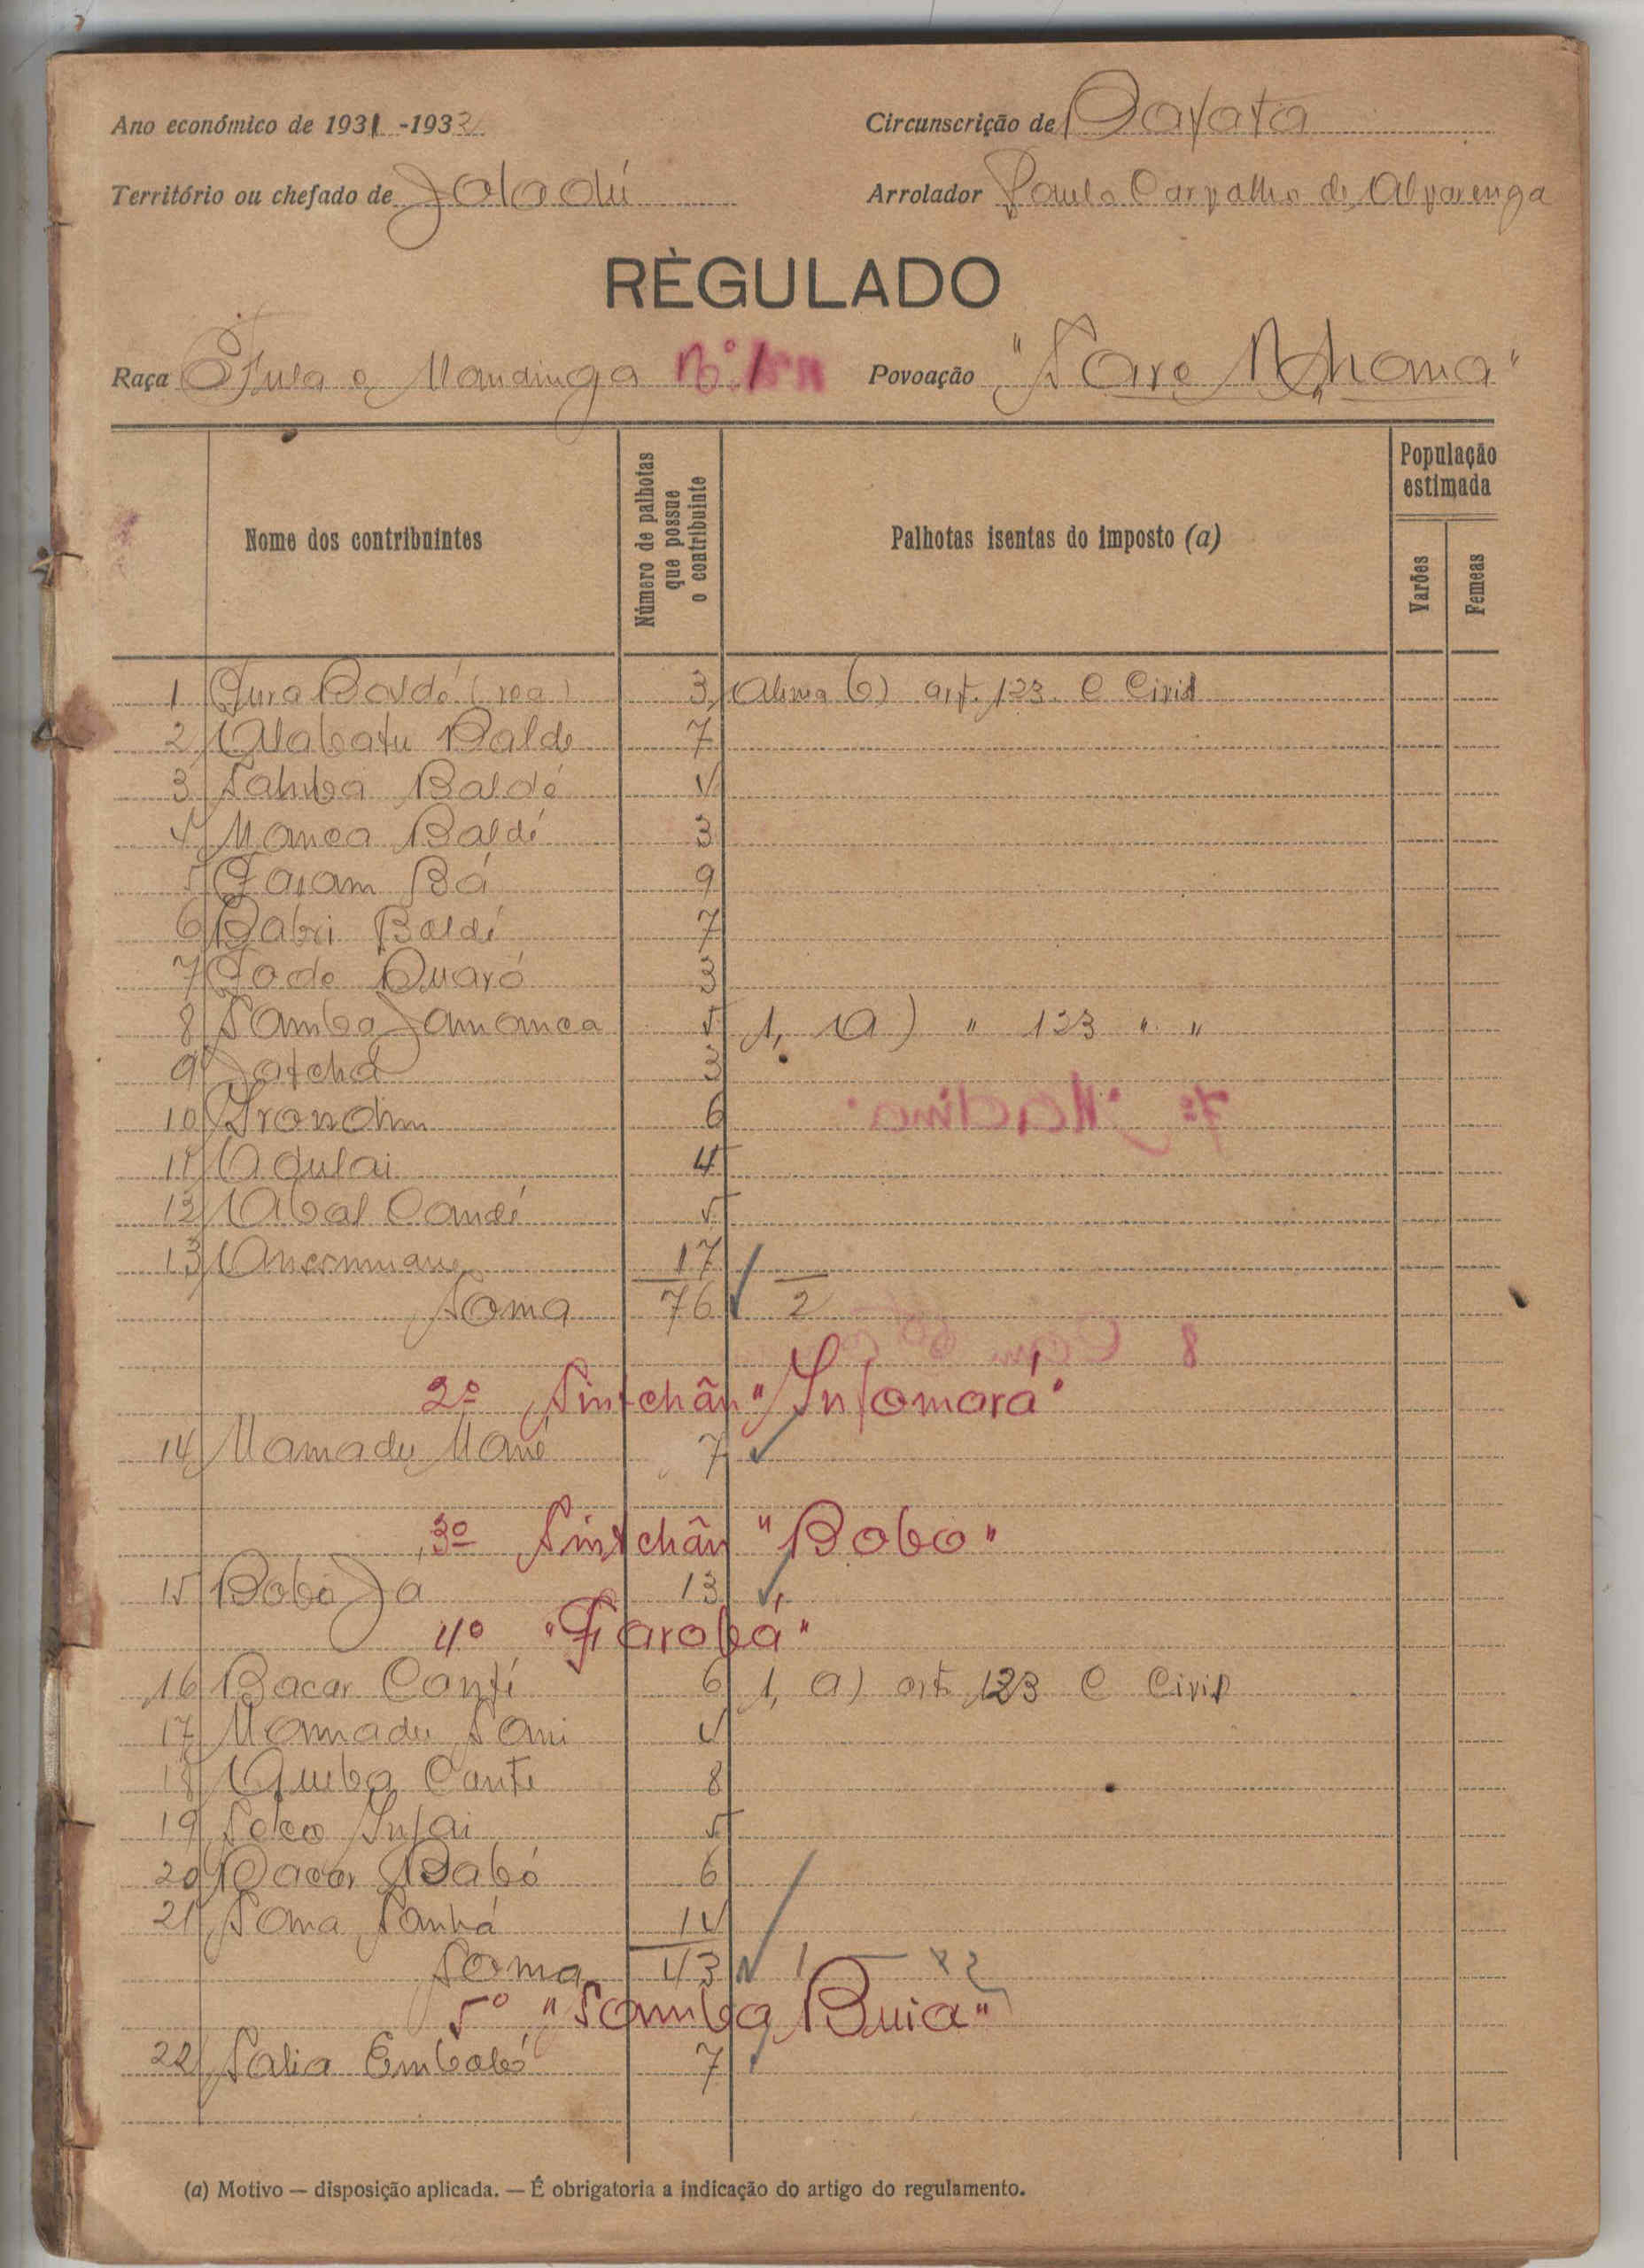 Ano económico de 1931 -1932
Circunscrição de Bafata
Território ou chefado de Joladú
Arrolador Paulo Carvalho de Alvarenga
RÈGULADO
Raça Fula e Mandinga Nº 1
Povoação "Sare Nhama"
Nome dos contribuintes
Número de palhotas que possue o contribuinte
Palhotas isentas do imposto (a)
População estimada
Varões
Femeas
1 Baldé 3 art. 123 C Civil
2 Alabatu Balde 7
3 Samba Baldé 4
4 Manca Baldé 3
5 Bá 9
6 Dabri Baldé 7
7 3
8 Samba Jamanca 5 1, a) " 123 " "
9 Jatchá 3
10 6
11 Adulai 4
12 Abal Candé 5
13 17
Soma 76 2
2º Sintchãn "Infamará"
14 Mamadu Mané 7
3º Sintchãn "Bobo"
15 Bobo Ja 13
4º "Farobá"
16 Bacar Canté 6 1, a) art. 123 C Civil
17 Mamadu Sani 4
18 Queba Cante 8
19 Injai 5
20 Bacar Dabó 6
21 Soma Sanhá 14
Soma 43 1
5º "Samba Buia"
22 Salia Embaló 7
(a) Motivo — disposição aplicada. — É obrigatoria a indicação do artigo do regulamento.